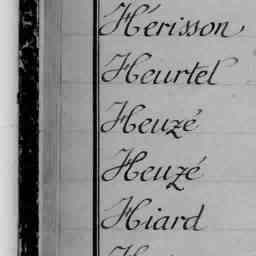 Hérisson
Heurtel
Heuzé
Heuzé
Hiard